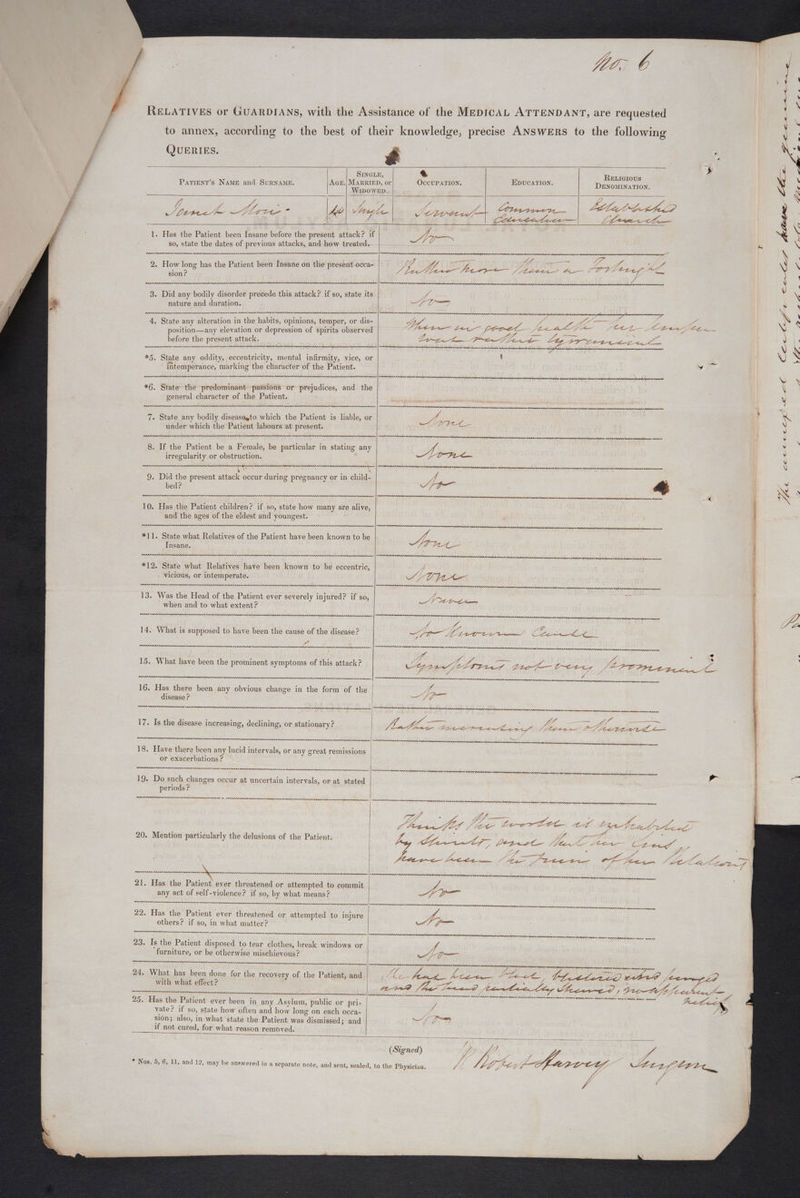 No. 6
RELATIVES or GUARDIANS, with the Assistance of the MEDICAL ATTENDANT, are requested
to annex, according to the best of their knowledge, precise ANSWERS to the following
QUERIES.
PATIENT'S NAME and SURNAME.
AGE.
SINGLE,
MARRIED, or
WIDOWED.
OCCUPATION.
EDUCATION.
RELIGIOUS
DENOMINATION.
Janet
Single
Servant
Common
Education
Established
Church
1. Has the Patient been Insane before the present attack? if
so, state the dates of previous attacks, and how treated.
No
2. How long has the Patient been Insane on the present occa-
sion?
Rather more than a Fortnight
3. Did any bodily disorder precede this attack? if so, state its
nature and duration.
No
4. State any alteration in the habits, opinions, temper, or dis-
position—any elevation or depression of spirits observed
before the present attack.
When in good health her temper
was rather tyrannical
*5. State any oddity, eccentricity, mental infirmity, vice, or
intemperance, marking the character of the Patient.
*6. State the predominant passions or prejudices, and the
general character of the Patient.
7. State any bodily disease, to which the Patient is liable, or
under which the Patient labours at present.
None
8. If the Patient be a Female, be particular in stating any
irregularity or obstruction.
None
9. Did the present attack occur during pregnancy or in child-
bed?
No
10. Has the Patient children? if so, state how many are alive,
and the ages of the eldest and youngest.
*11. State what Relatives of the Patient have been known to be
Insane.
None
*12. State what Relatives have been known to be eccentric,
vicious, or intemperate.
None
13. Was the Head of the Patient ever severely injured? if so,
when and to what extent?
Never
14. What is supposed to have been the cause of the disease?
No Known Cause
15. What have been the prominent symptoms of this attack?
Symptoms not very prominent
16. Has there been any obvious change in the form of the
disease?
No
17. Is the disease increasing, declining, or stationary?
Rather increasing than otherwise
18. Have there been any lucid intervals, or any great remissions
or exacerbations?
19. Do such changes occur at uncertain intervals, or at stated
periods?
20. Mention particularly the delusions of the Patient.
Thinks the world is inhabited
by Spirits, and that her Sins
have been the ruin of her Relations
21. Has the Patient ever threatened or attempted to commit
any act of self-violence? if so, by what means?
No
22. Has the Patient ever threatened or attempted to injure
others? if so, in what matter?
No
23. Is the Patient disposed to tear clothes, break windows or
furniture, or be otherwise mischievous?
No
24. What has been done for the recovery of the Patient, and
with what effect?
has been bled, blistered and purged
and the head partially shaved, no apparent
relief
25. Has the Patient ever been in any Asylum, public or pri-
vate? if so, state how often and how long on each occa-
sion; also, in what state the Patient was dismissed; and
if not cured, for what reason removed.
No
(Signed)
Robert Harvey Surgeon
* Nos. 5, 6, 11, and 12, may be answered in a separate note, and sent, sealed, to the Physician.